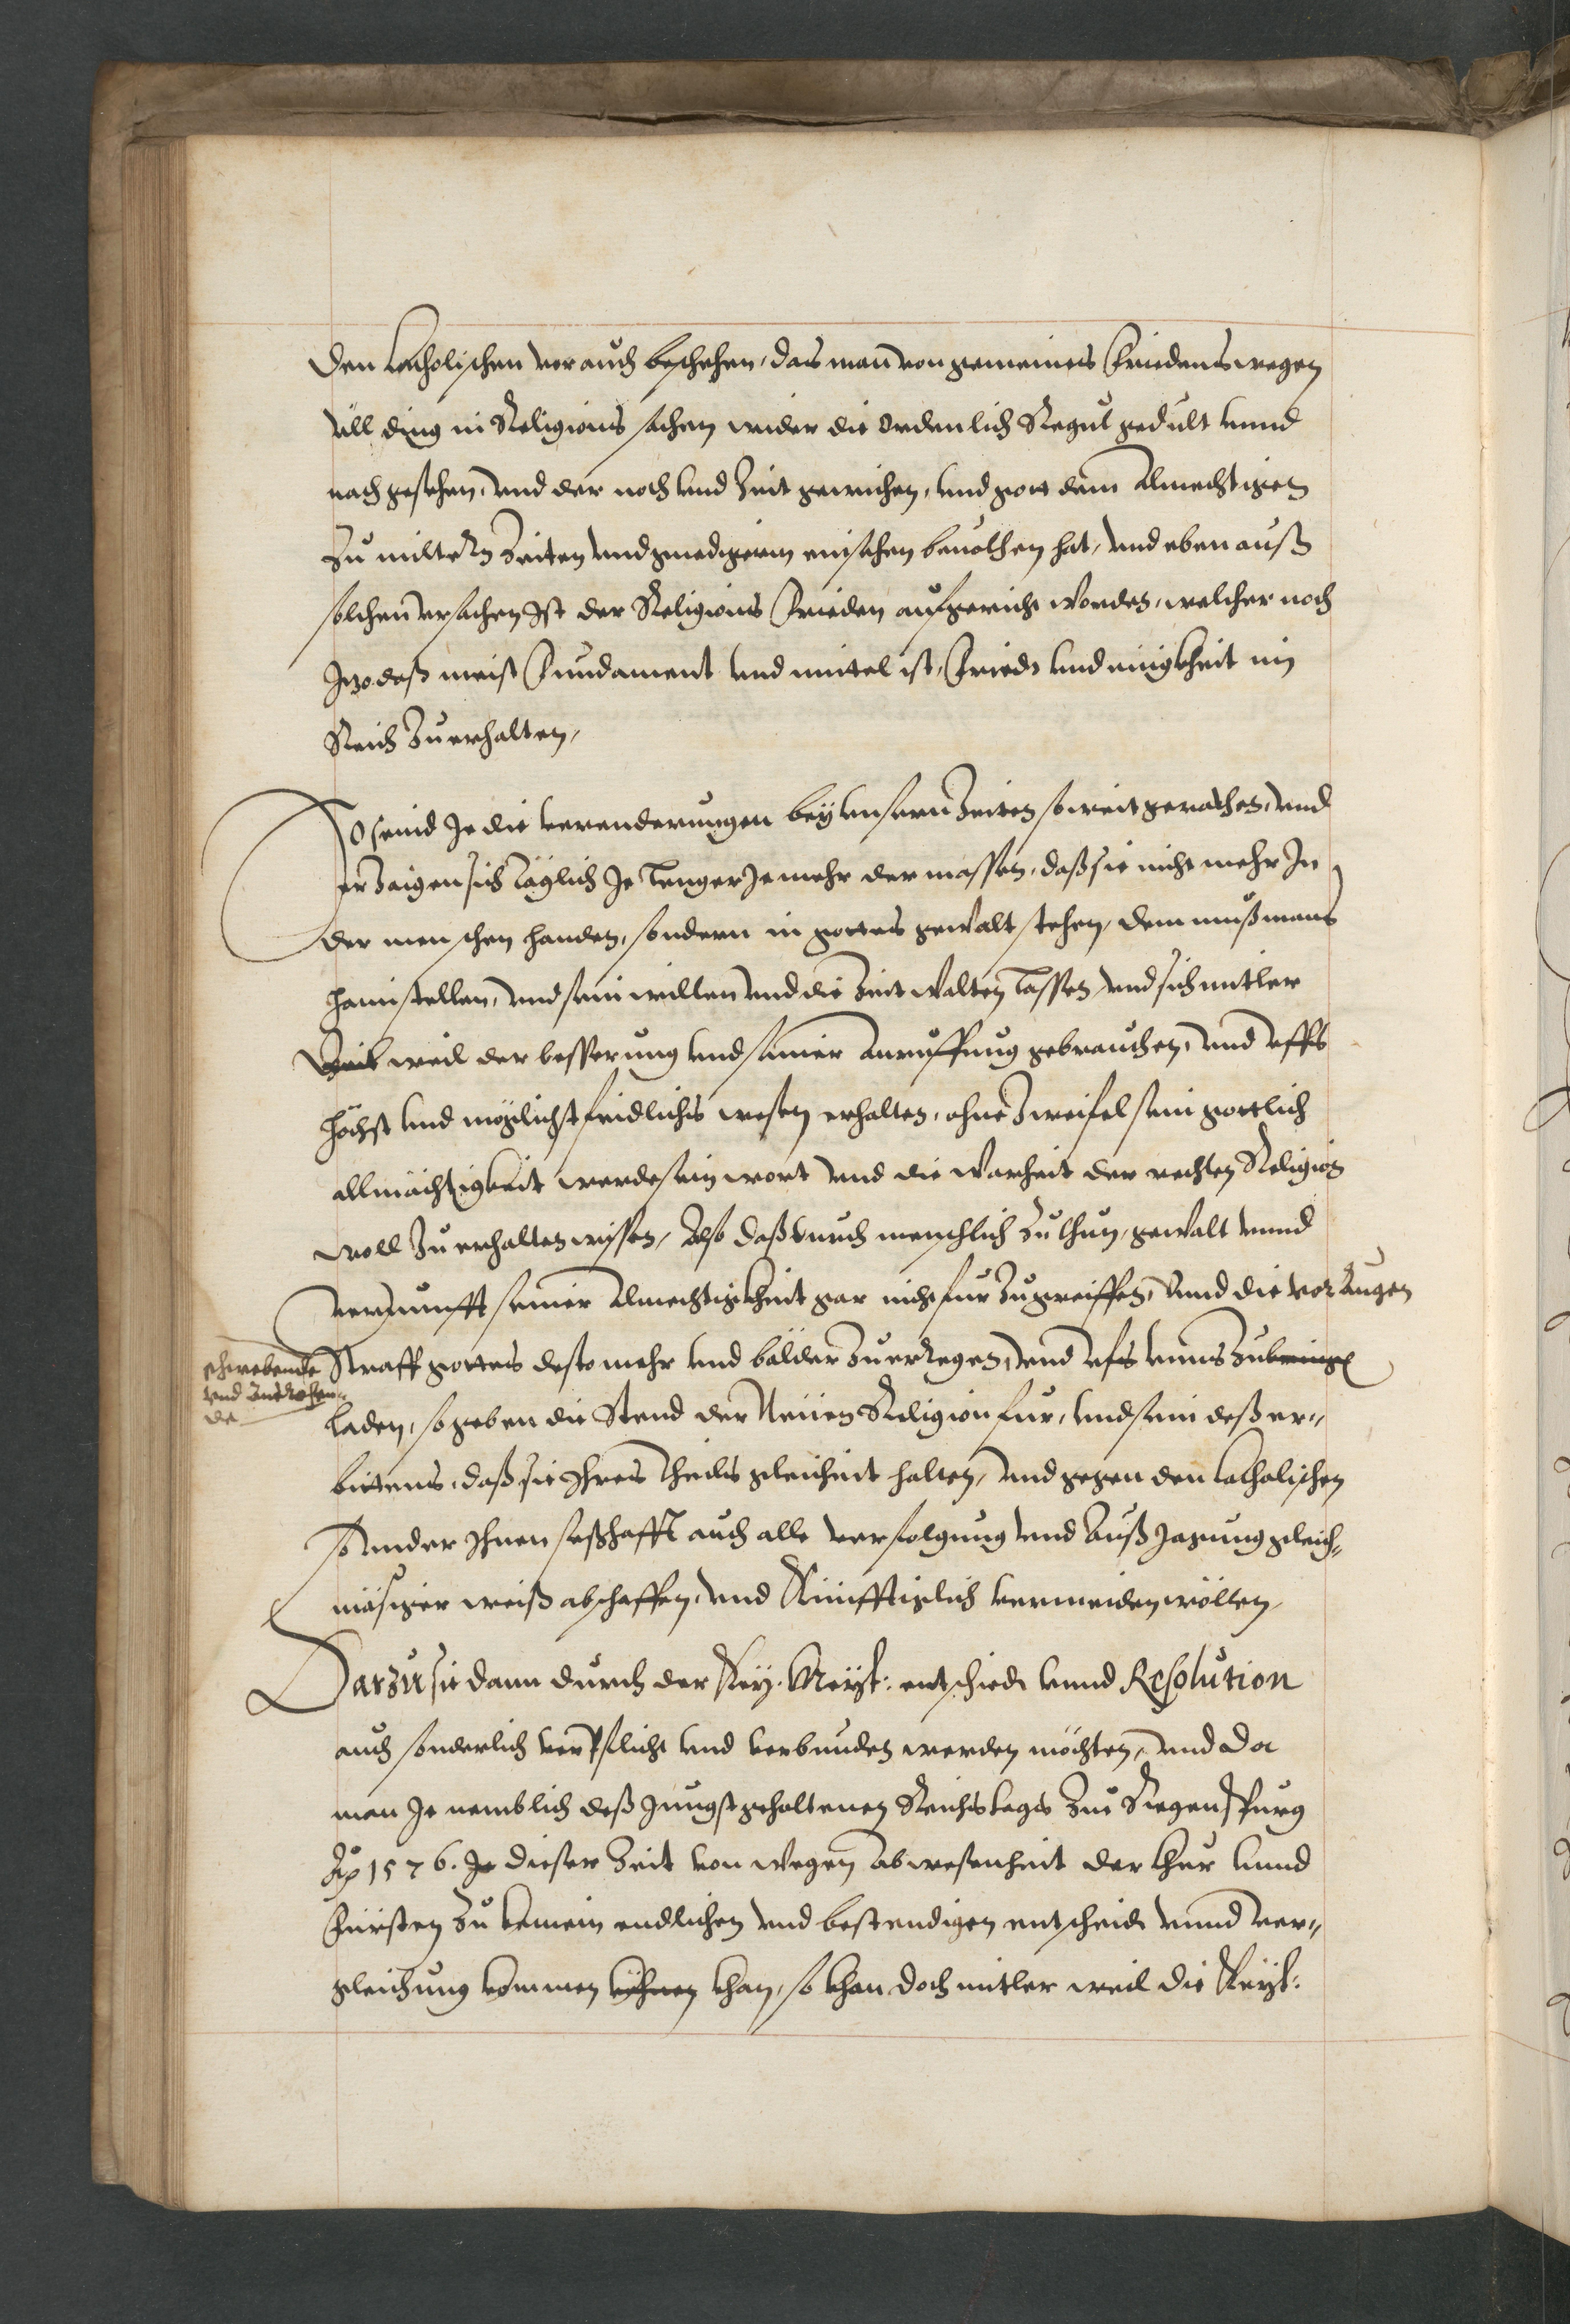 den Catholischen vor auch beschehen, das man von gemeines Friedens wegen
vill ding in Religions sachen wider die ordenlich Regul gedult vnnd
nachgesehen, vnd der noth vnd Zeit gewichen, vnd gott dem Almechtigen
Zu miltern Zeiten vnd gnedigerm einsehen beuolhen hat, vnd eben auß
solchen vrsachen Ist der Religions Frieden aufgericht worden, welcher noch
Izo daß meist Fundament vnd mittel ist, Friedt vnd einigkheit im
Reich Zu erhalten,
So seind Je die verenderungen beÿ vnsern Zeiten so weit gerathen, vnd
erZaigen sich täglich Je lenger Je mehr der massen, daß sie nicht mehr In
der menschen handen, sondern in gottes gewalt stehen, dem muß mans
haimstellen, vnd sein willen vnd die Zeit walten lassen, vnd sich mitler
weil der besserung vnd seiner anruffung gebrauchen, vnd vffs
höchst vnd möglichst fridlichs wesen erhalten, ohne Zweifel sein gottlich
allmächtigkeit werde sein wort vnd die warheit der rechten Religion
woll Zu erhalten wissen, Also daß durch menschlich Zuthun, gewalt vnnd
vernunfft seiner Almechtigkheit gar nicht fur Zugreiffen, vnnd die vor Augen
schwebende
vnd Androhen-
de
Straff gottes desto mehr vnd bälder Zu erregen, vnd vf vnns Zubringen
laden, so geben die Stend der Neuen Religion fur, vnd sein deß er-
bietens, daß sie Ihres Theils gleicheit halten, vnd gegen den Catholischen
so vnder Ihnen seßhafft auch alle verfolgung vnd Außjagung gleich-
mäsiger weiß abschaffen, vnd Künfftiglich vermeiden wöllen,
Darzu sie dann durch der Key. Meyst: entschiedt vnnd Resolution
auch sonderlich verpflicht vnd verbunden werden möchten, vnd da
man Je nemblich deß Jungst gehaltenen Reichstags Zue Regenspurg
Ao 1576. Je dieser Zeit von wegen abwesenheit der Chur vnnd
Fürsten Zu keinem endlichen vnd bestendigen entscheidt vnnd ver-
gleichung kommen khan, so khan doch mitler weil die Keyst: